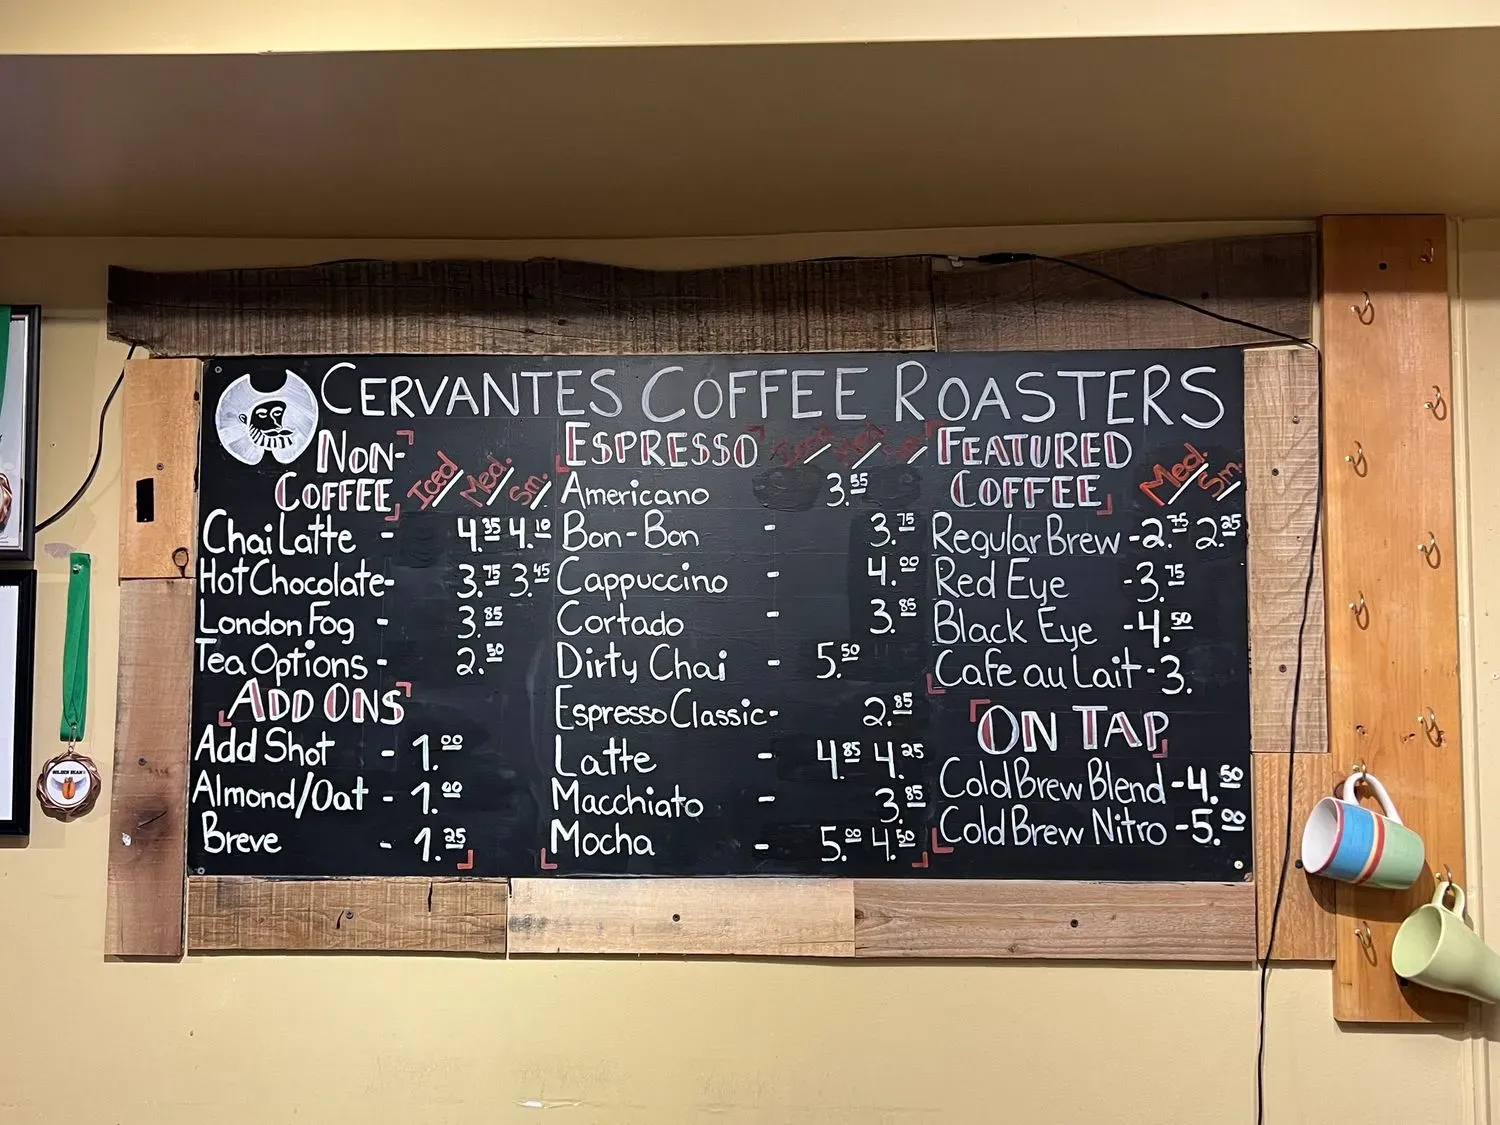 CERVANTES COFFEE ROASTERS
NON-
COFFEE Iced/Med./Sm./
Chai Latte - 4.35 4.10
Hot Chocolate- 3.75 3.45
London Fog - 3.85
Tea Options - 2.50
ADD ONS
Add Shot - 1.00
Almond/Oat - 1.00
Breve - 1.25
ESPRESSO Iced/Med/
Americano 3.55
Bon-Bon - 3.75
Cappuccino - 4.00
Cortado - 3.85
Dirty Chai - 5.50
Espresso Classic- 2.85
Latte - 4.85 4.25
Macchiato - 3.85
Mocha - 5.00 4.50
FEATURED
COFFEE Med./Sm./
Regular Brew -2.75 2.25
Red Eye -3.75
Black Eye -4.50
Cafe au Lait -3.
ON TAP
Cold Brew Blend -4.50
Cold Brew Nitro -5.00